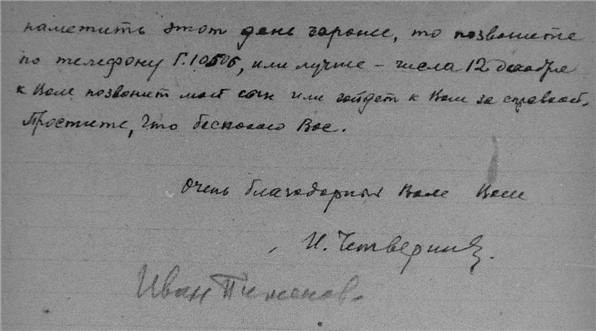 наметить этот день заранее, то позвоните
по телефону Г.10505, или лучше – числа 12 декабря
к Вам позвонит мой сын или зайдет к Вам за справкой.
Простите, что беспокою Вас.
Очень благодарный Вам Ваш
И. Четвериков.
Иван Пименов.